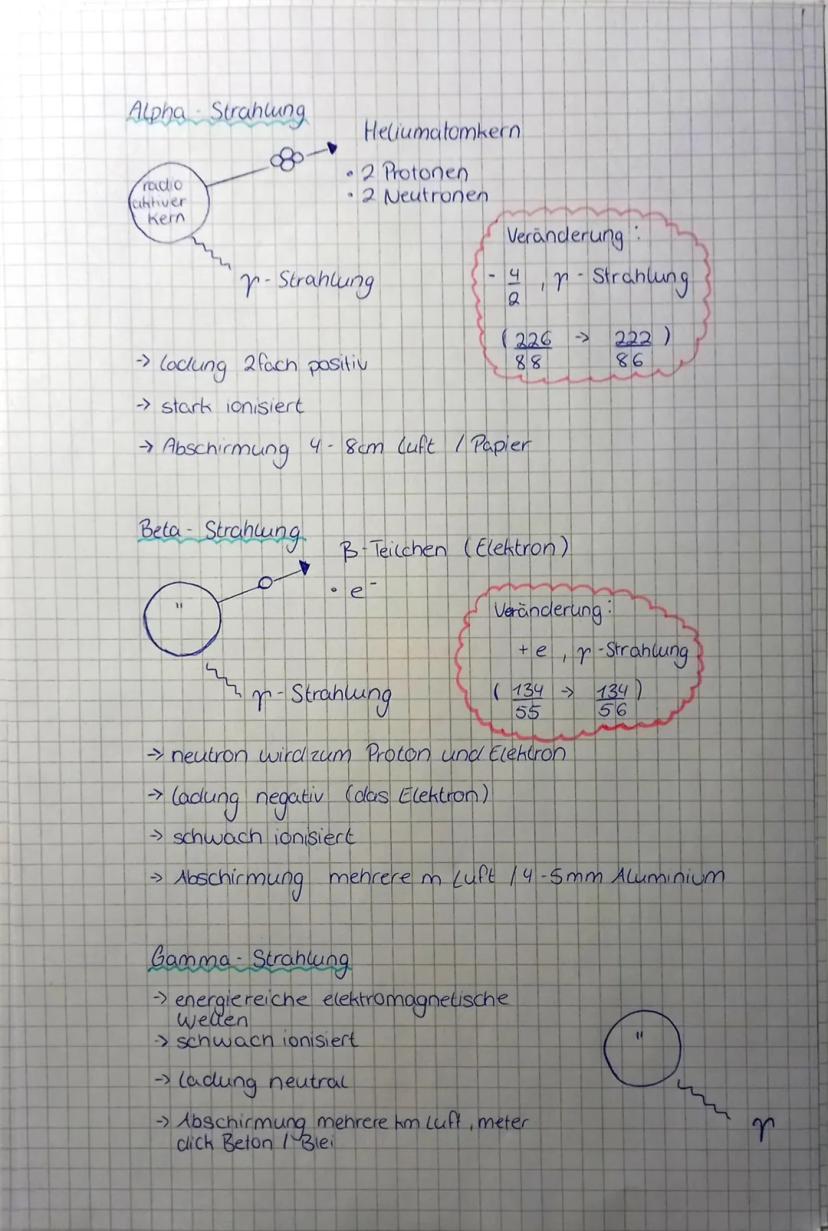 Alpha - Strahlung
Heliumatomkern
• 2 Protonen
• 2 Neutronen
radio
aktiver
Kern
γ - Strahlung
Veränderung :
- 4/2 , γ - Strahlung
( 226/88 → 222/86 )
→ Ladung 2fach positiv
→ stark ionisiert
→ Abschirmung 4 - 8cm Luft / Papier
Beta - Strahlung
B-Teilchen (Elektron)
• e⁻
"
γ - Strahlung
Veränderung :
+ e , γ - Strahlung
( 134/55 → 134/56 )
→ neutron wird zum Proton und Elektron
→ Ladung negativ (das Elektron)
→ schwach ionisiert
→ Abschirmung mehrere m Luft / 4 - 5mm Aluminium
Gamma - Strahlung
→ energiereiche elektromagnetische
Wellen
→ schwach ionisiert
→ Ladung neutral
→ Abschirmung mehrere km Luft, meter
dick Beton / Blei
"
γ